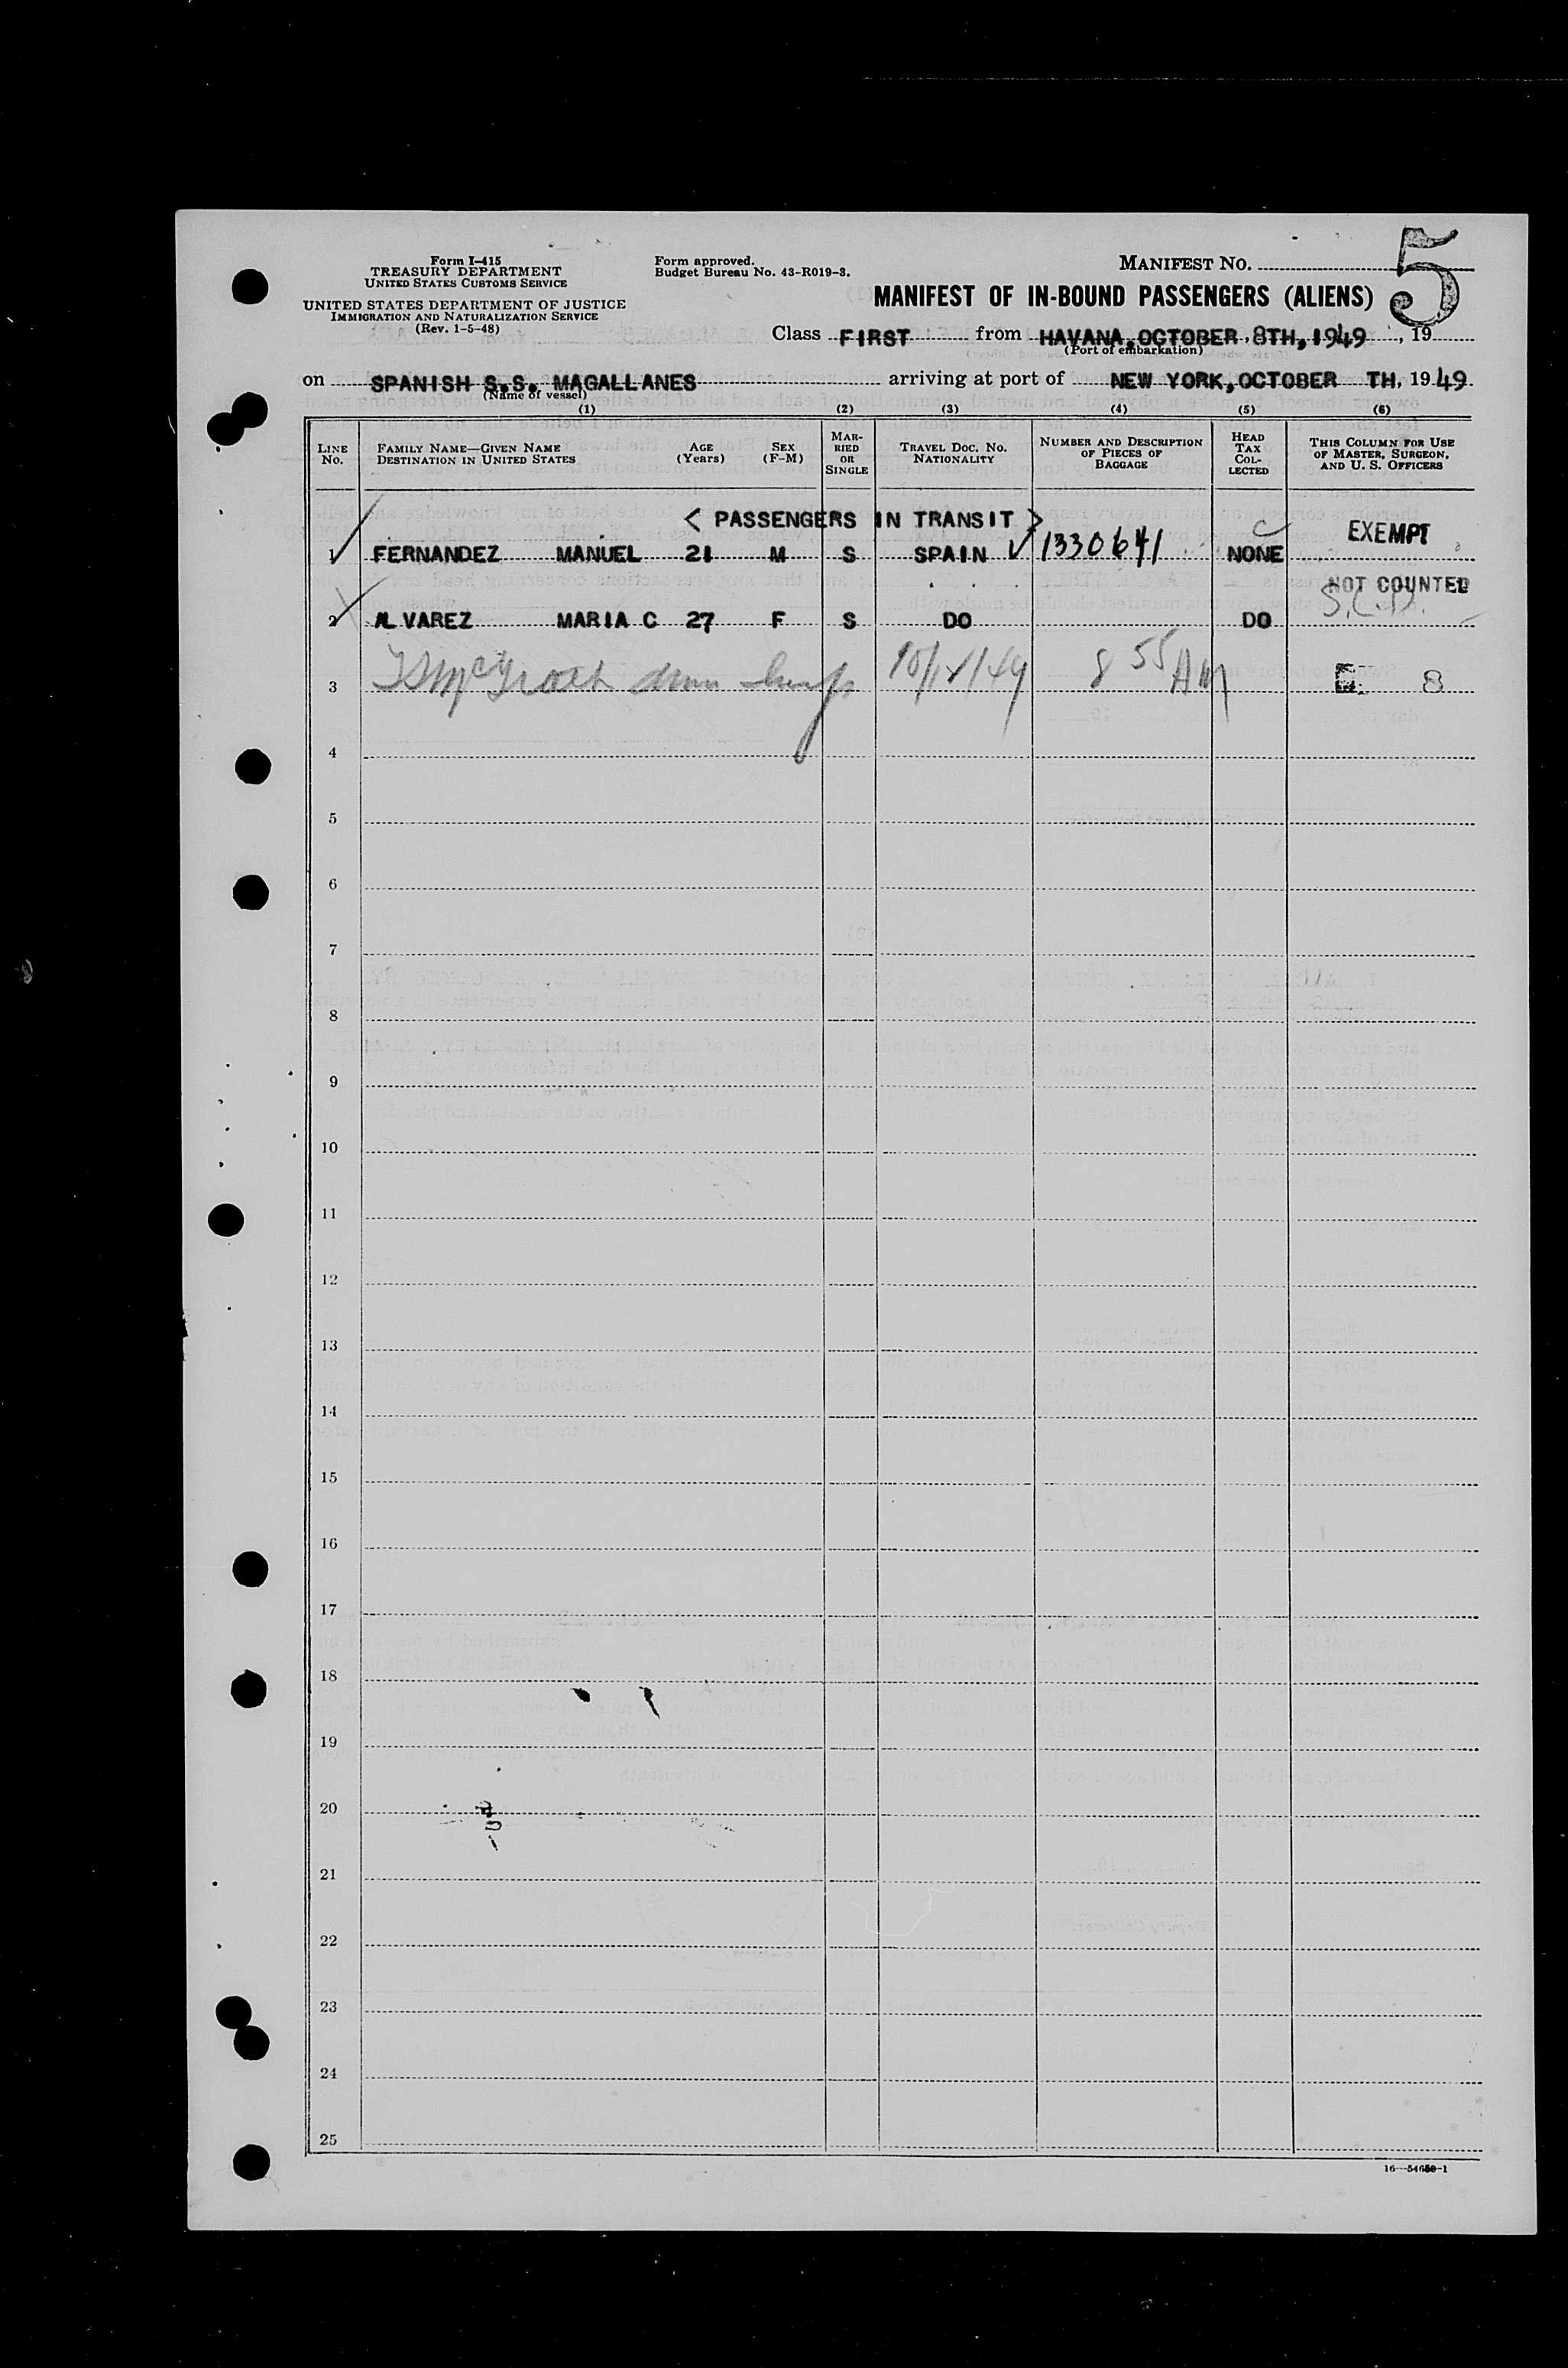 Form I-415
TREASURY DEPARTMENT
UNITED STATES CUSTOMS SERVICE
UNITED STATES DEPARTMENT OF JUSTICE
IMMIGRATION AND NATURALIZATION SERVICE
(Rev. 1-5-48)
Form approved.
Budget Bureau No. 43-R019-3.
MANIFEST NO. 5
MANIFEST OF IN-BOUND PASSENGERS (ALIENS)
Class FIRST from HAVANA, OCTOBER 8TH, 1949, 19
(Port of embarkation)
on SPANISH S.S. MAGALLANES arriving at port of NEW YORK, OCTOBER TH, 1949
(Name of vessel)
(1) (2) (3) (4) (5) (6)
LINE NO. FAMILY NAME—GIVEN NAME DESTINATION IN UNITED STATES AGE (Years) SEX (F-M) MARRIED OR SINGLE TRAVEL DOC. NO. NATIONALITY NUMBER AND DESCRIPTION OF PIECES OF BAGGAGE HEAD TAX COLLECTED THIS COLUMN FOR USE OF MASTER, SURGEON, AND U. S. OFFICERS
< PASSENGERS IN TRANSIT > EXEMPT
1 FERNANDEZ MANUEL 21 M S SPAIN 1330641 NONE
NOT COUNTED
2 ALVAREZ MARIA C 27 F S DO DO
3 McGrath 8 55 AM 8
4
5
6
7
8
9
10
11
12
13
14
15
16
17
18
19
20
21
22
23
24
25